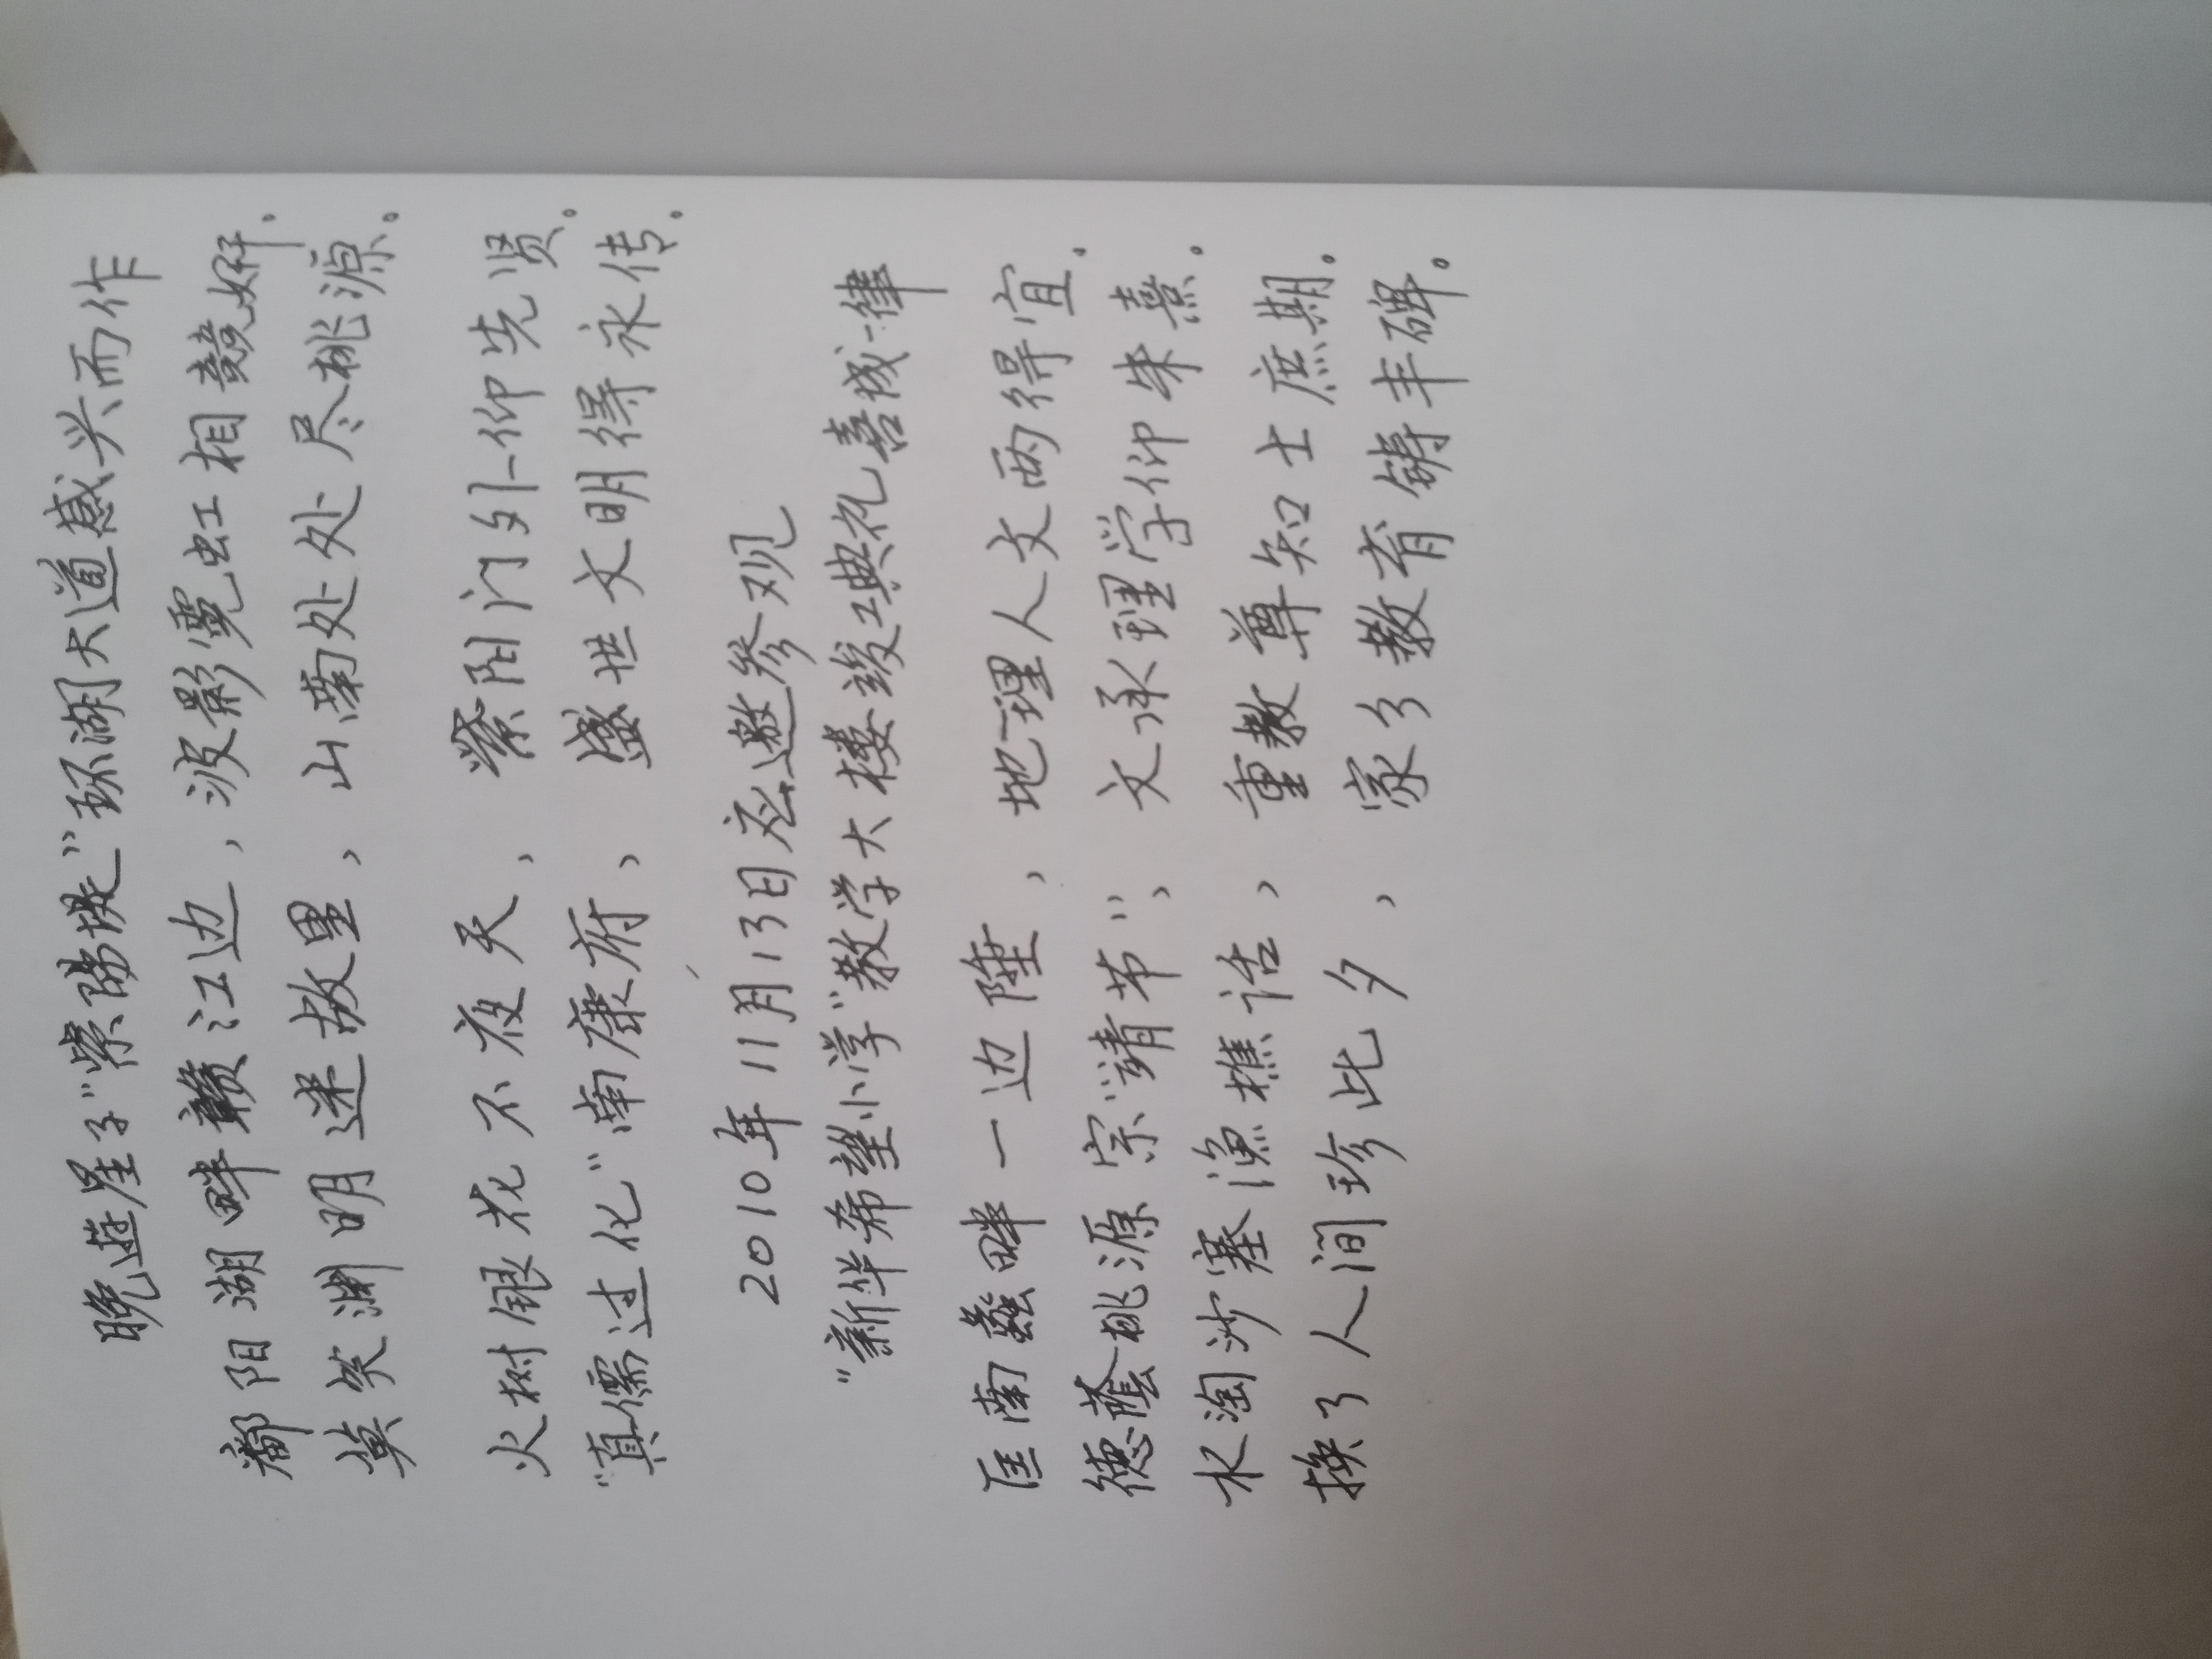 晚遊星子“紫陽堤”环湖大道感兴而作
鄱阳湖畔赣江边，波影霓虹相競妍．
莫笑渊明迷故里，山南处处尽桃源。
火树银花不夜天，紫阳门外仰先贤．
“真儒过化”南康府，盛世文明得永传．
2010年11月13日应邀参观
“新华希望小学”教学大楼竣工典礼喜成一律
匡南蠡畔一边陲，地理人文两得宜．
德馨桃源宗“靖节”，文承理学仰朱熹．
水淘沙塞渔樵话，重教尊知士庶期。
换了人间珍此夕，家乡教育铸丰碑。